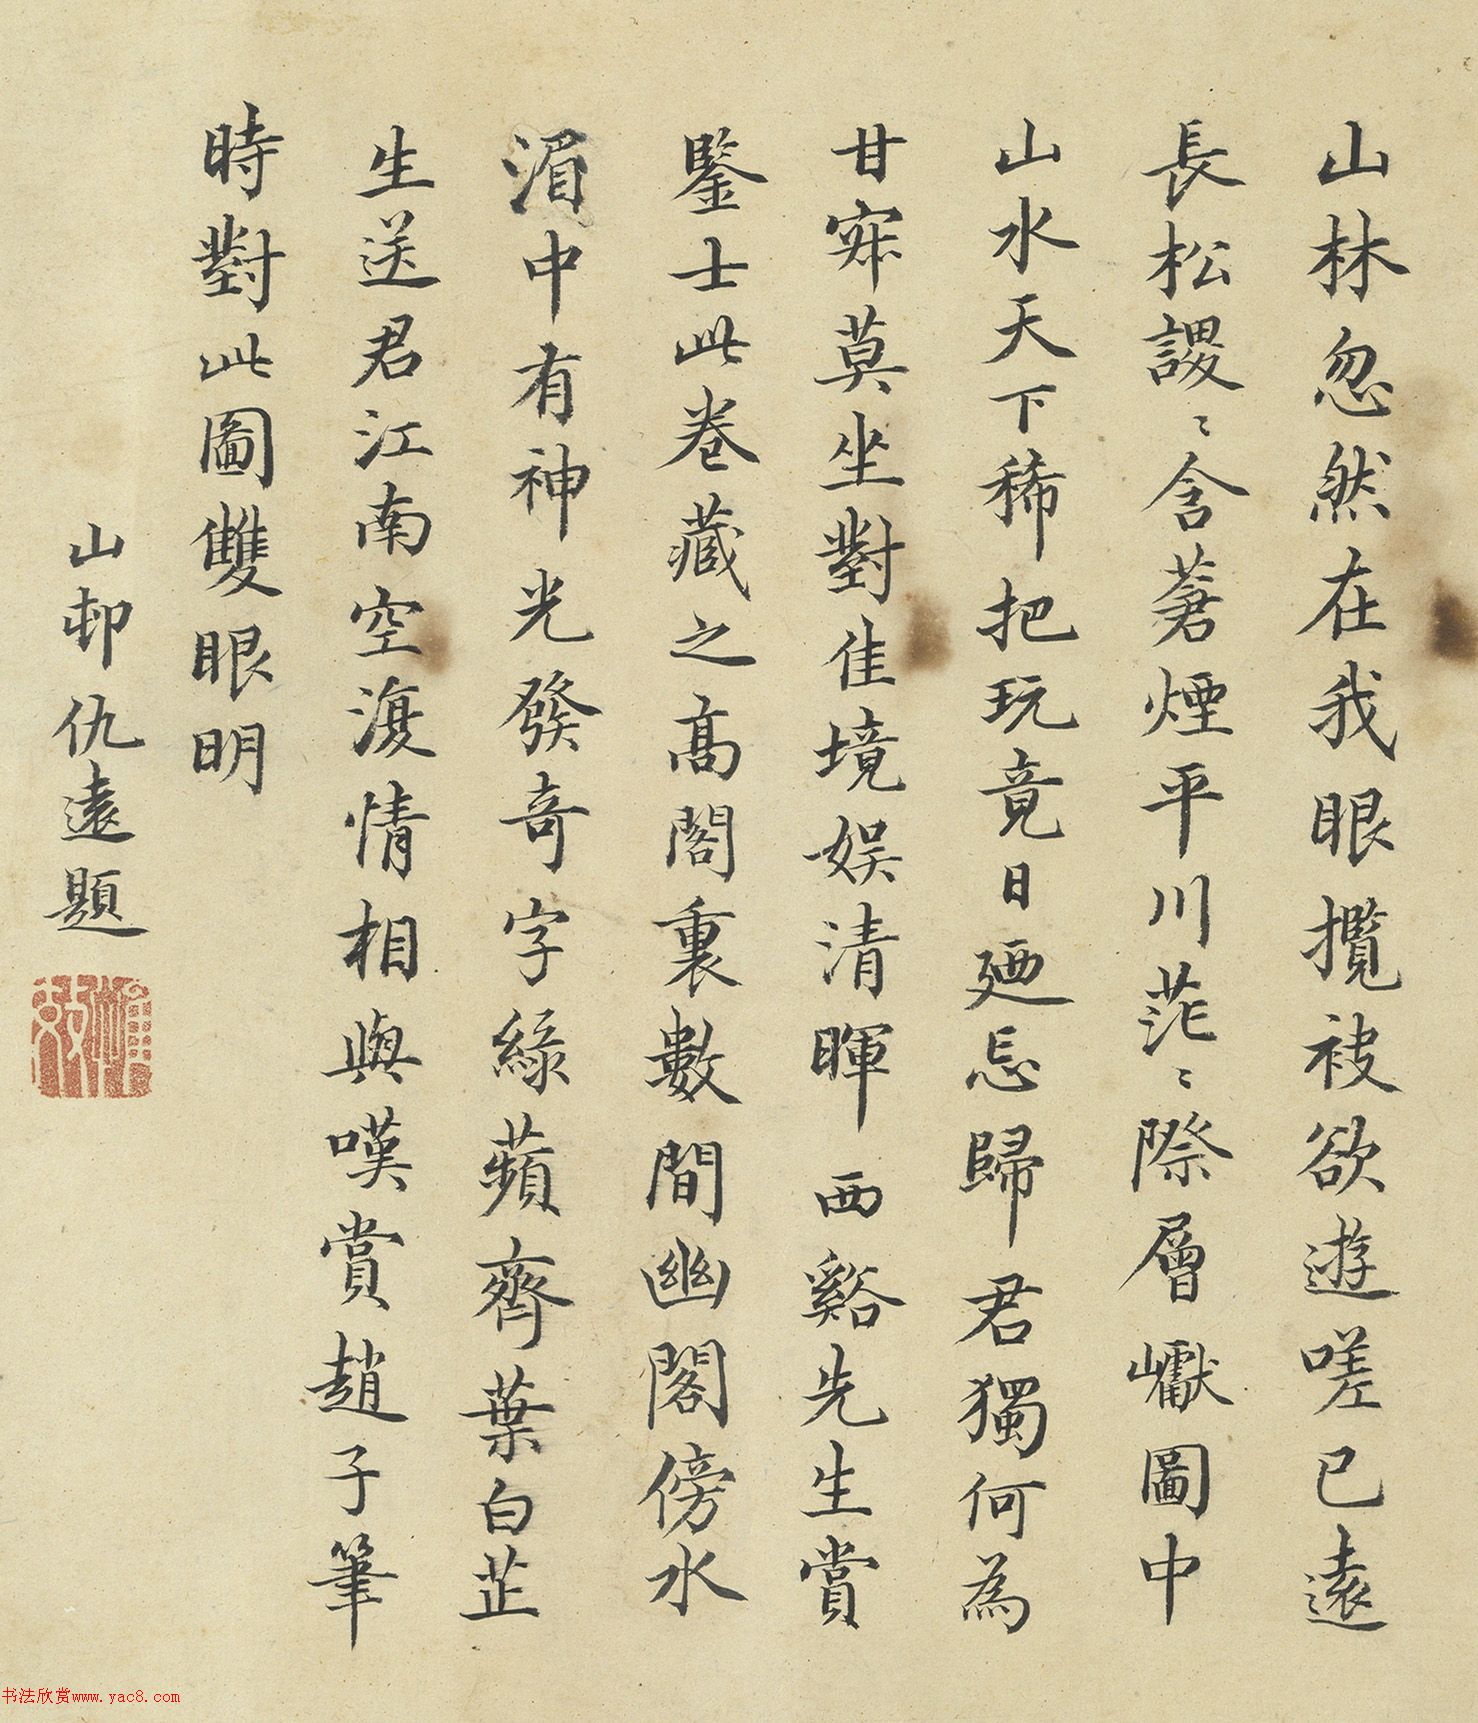 山林忽然在我眼攬被欲遊嗟已遠
長松謖〻含蒼煙平川茫〻際層巘圖中
山水天下稀把玩竟日廼忘歸君獨何為
甘寂莫坐對佳境娛清暉西谿先生賞
鑒士此卷藏之高閣裏數間幽閣傍水
湄中有神光發奇字綠蘋齊葉白芷
生送君江南空復情相與嘆賞趙子筆
時對此圖雙眼明
山邨仇遠題
书法欣赏www.yac8.com